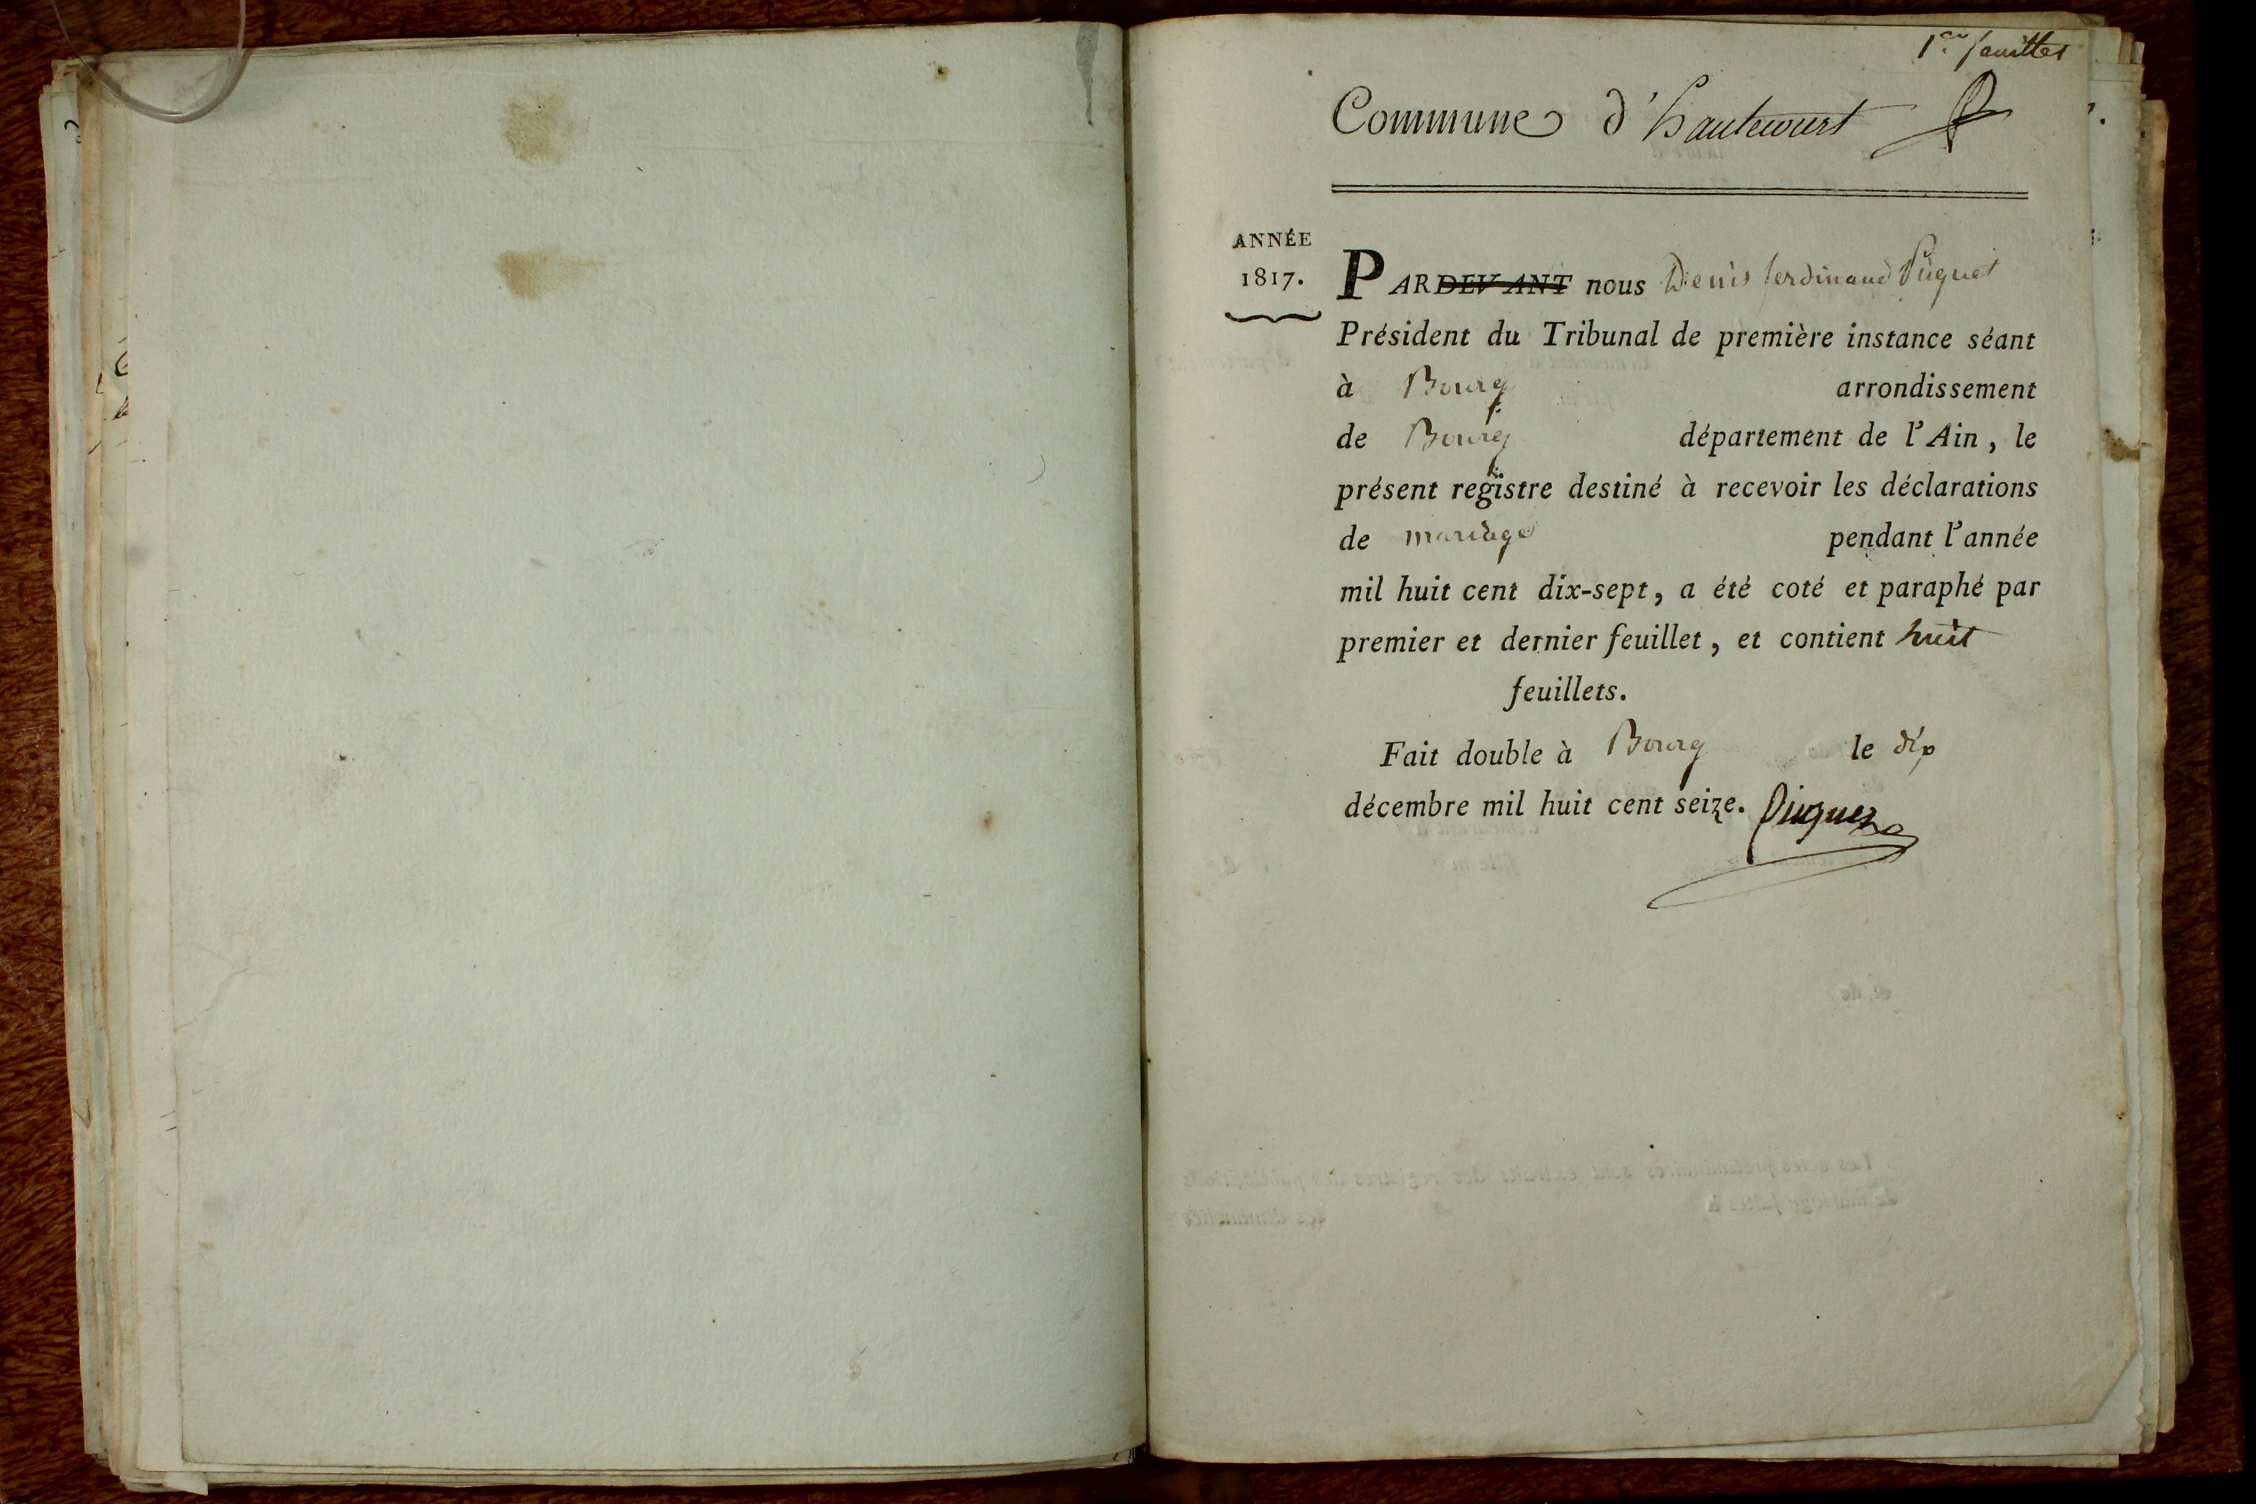 1er feuillet
Commune d'hautecourt
ANNÉE
1817.
PARDEVANT nous Denis ferdinand Piquet
Président du Tribunal de première instance séant
à Bourg arrondissement
de Bourg département de l'Ain, le
présent registre destiné à recevoir les déclarations
de mariage pendant l'année
mil huit cent dix-sept, a été coté et paraphé par
premier et dernier feuillet, et contient huit
feuillets.
Fait double à Bourg le dix
décembre mil huit cent seize. Piquet